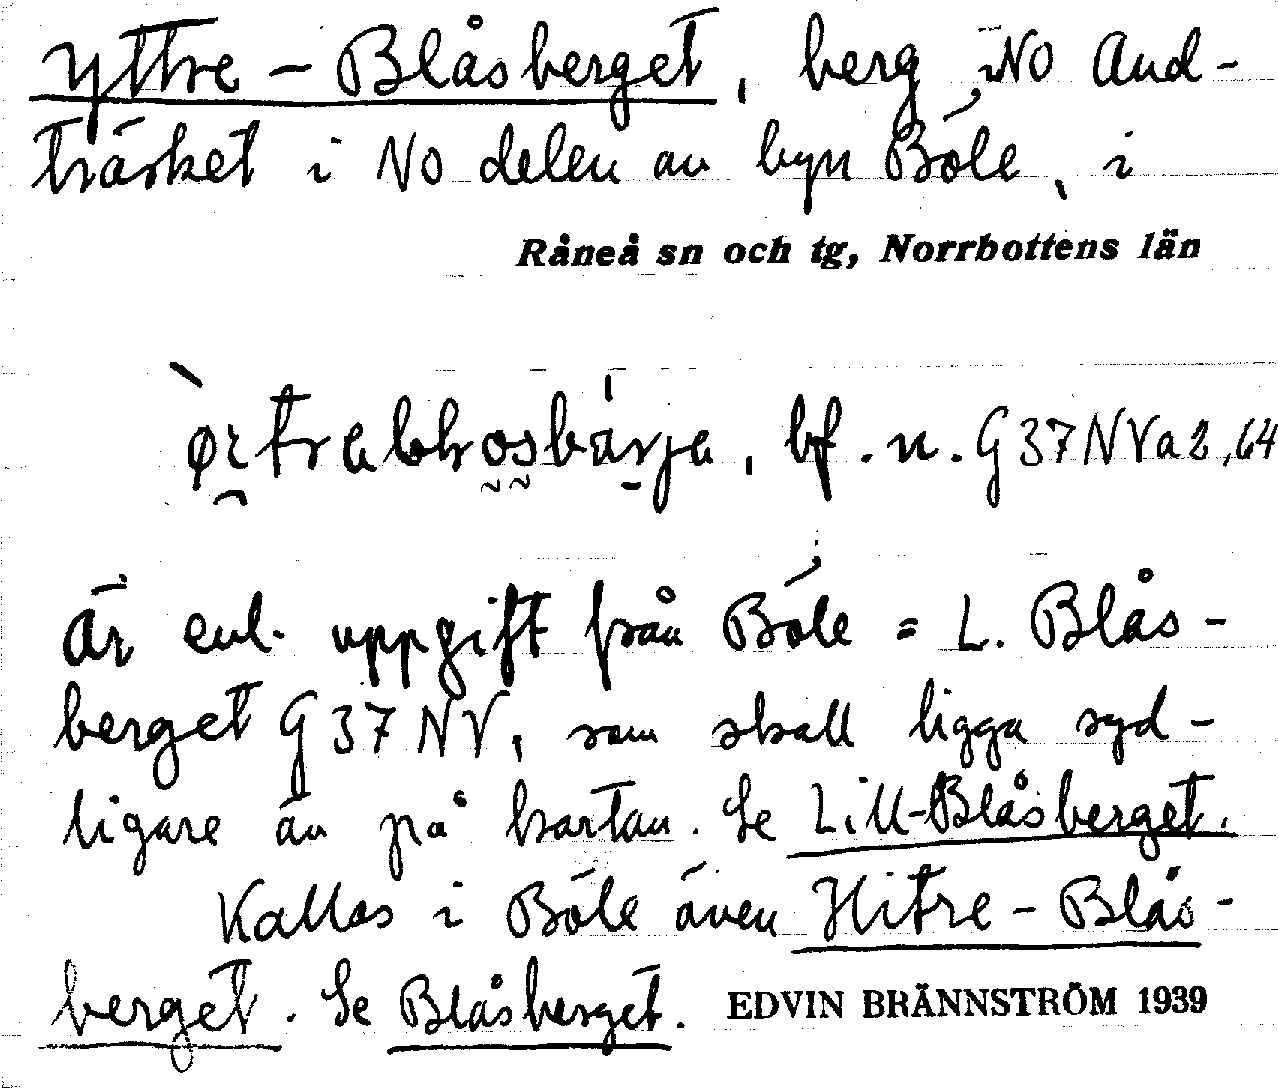 Yttre-Blåsberget, berg i NO And-
träsket i NO delen av byn Böle, i
Råneå sn och tg, Norrbottens län
bf. n. G37NVa2,64
Är enl. uppgift från Böle = L. Blås-
berget G37NV, som skall ligga syd-
ligare än på kartan. Se Lill-Blåsberget.
Kallas i Böle även Hitre-Blås-
berget. Se Blåsberget. EDVIN BRÄNNSTRÖM 1939